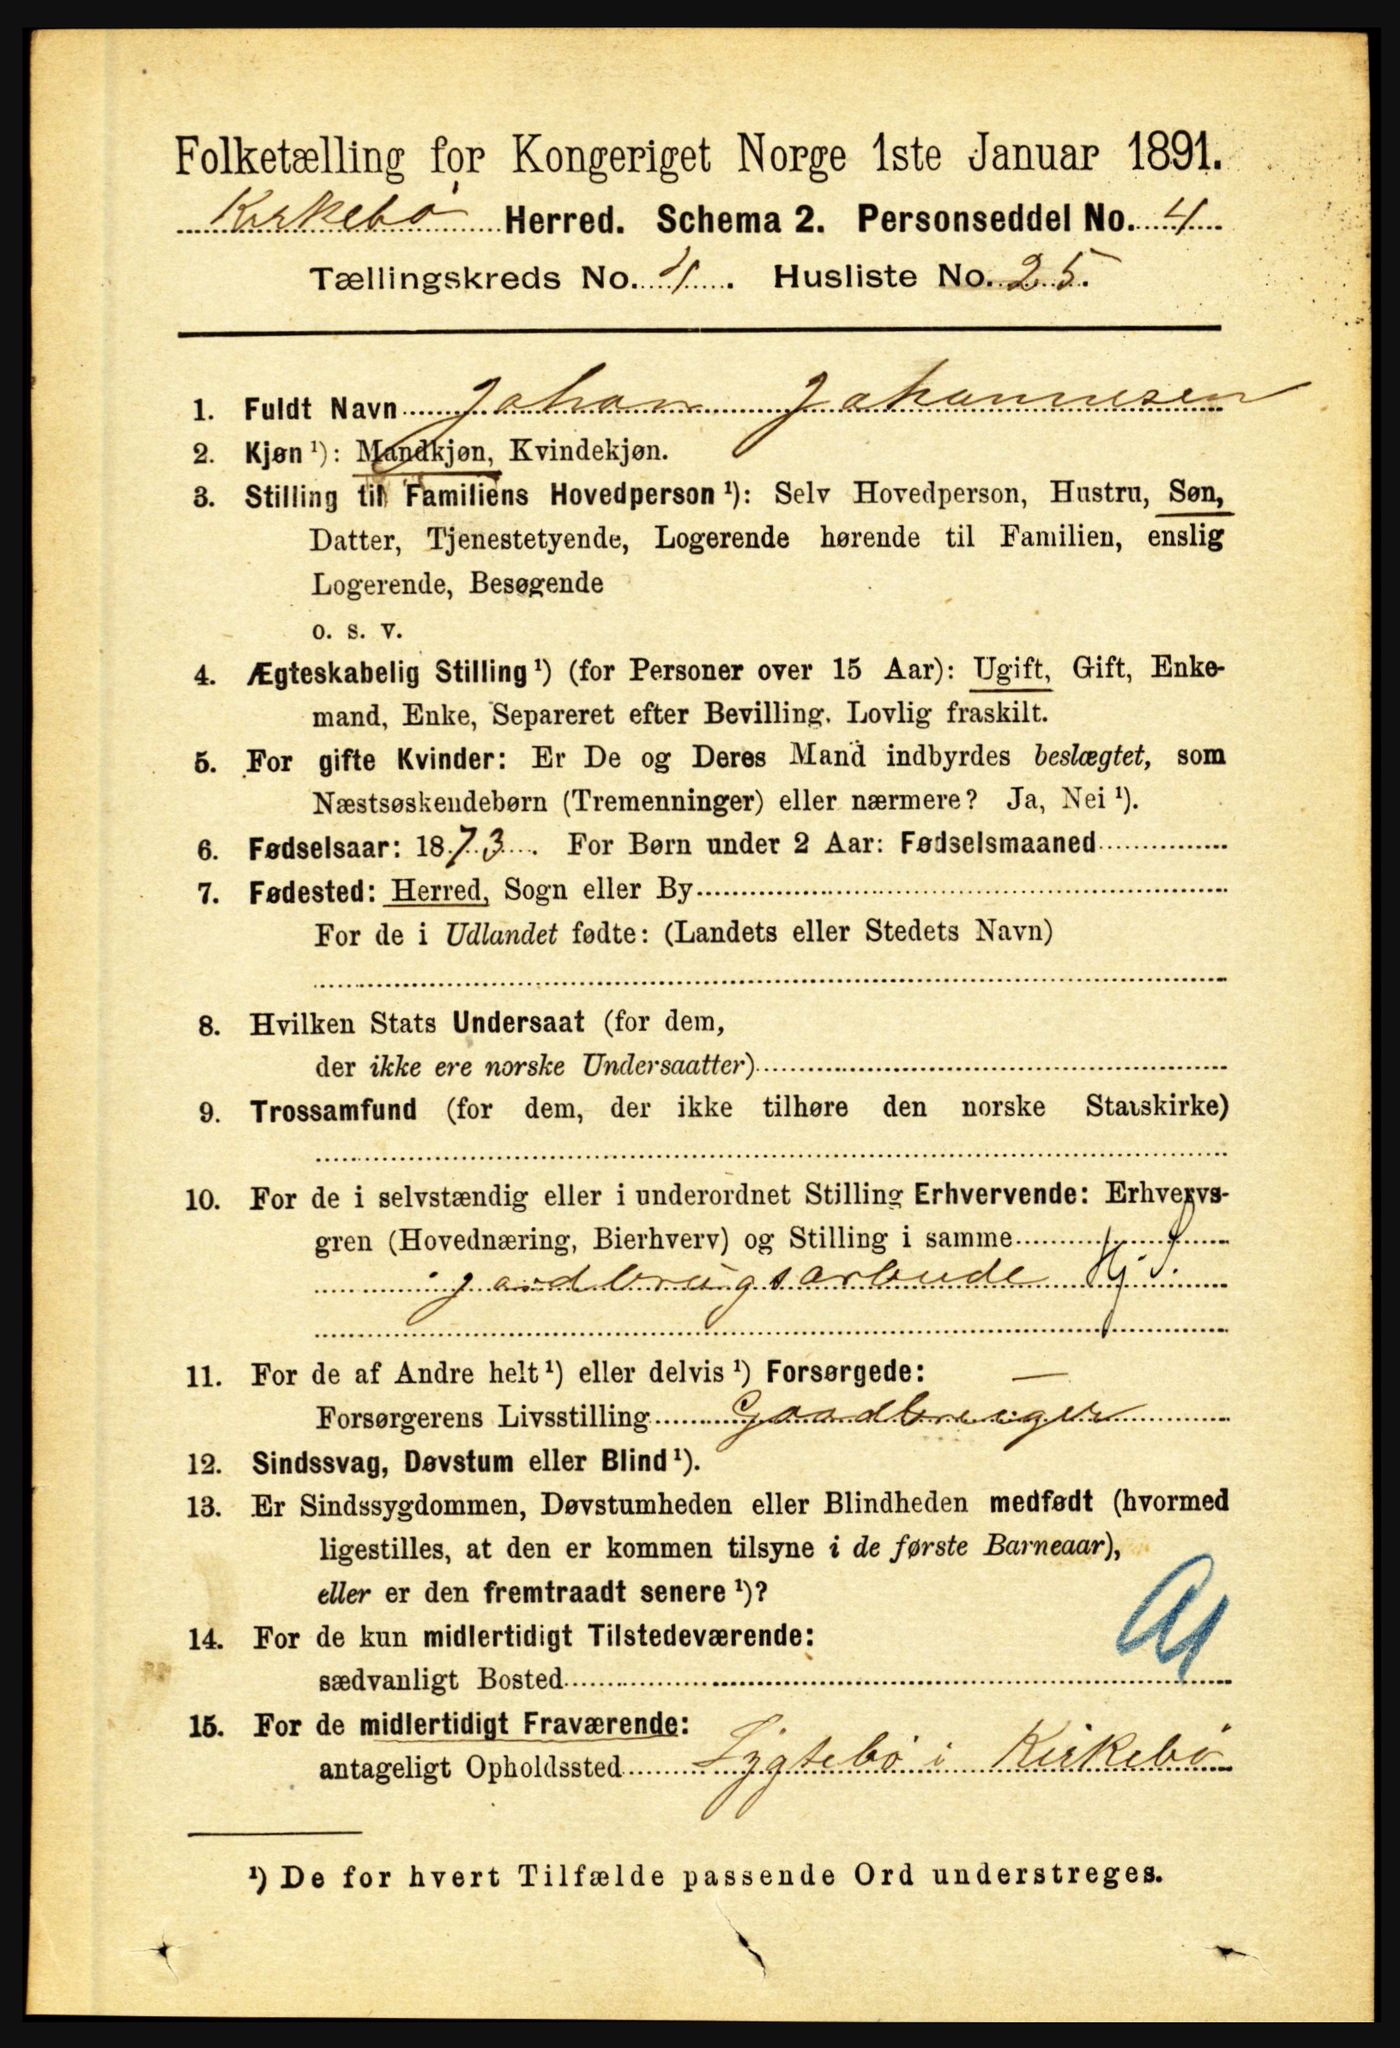 Folketælling for Kongeriget Norge 1ste Januar 1891.
Kirkebø Herred. Schema 2. Personseddel No. 4
Tællingskreds No. 4. Husliste No. 25.
1. Fuldt Navn Johan Johannesen
2. Kjøn ¹): Mandkjøn, Kvindekjøn.
3. Stilling til Familiens Hovedperson ¹): Selv Hovedperson, Hustru, Søn,
Datter, Tjenestetyende, Logerende hørende til Familien, enslig
Logerende, Besøgende
o. s. v.
4. Ægteskabelig Stilling ¹) (for Personer over 15 Aar): Ugift, Gift, Enke-
mand, Enke, Separeret efter Bevilling. Lovlig fraskilt.
5. For gifte Kvinder: Er De og Deres Mand indbyrdes beslægtet, som
Næstsøskendebørn (Tremenninger) eller nærmere? Ja, Nei ¹).
6. Fødselsaar: 1873. For Børn under 2 Aar: Fødselsmaaned
7. Fødested: Herred, Sogn eller By
For de i Udlandet fødte: (Landets eller Stedets Navn)
8. Hvilken Stats Undersaat (for dem,
der ikke ere norske Undersaatter)
9. Trossamfund (for dem, der ikke tilhøre den norske Statskirke)
10. For de i selvstændig eller i underordnet Stilling Erhvervende: Erhvervs-
gren (Hovednæring, Bierhverv) og Stilling i samme
jordbrugsarbeide
11. For de af Andre helt ¹) eller delvis ¹) Forsørgede: —
Forsørgerens Livsstilling Gaardbruger
12. Sindssvag, Døvstum eller Blind ¹).
13. Er Sindssygdommen, Døvstumheden eller Blindheden medfødt (hvormed
ligestilles, at den er kommen tilsyne i de første Barneaar),
eller er den fremtraadt senere ¹)?
14. For de kun midlertidigt Tilstedeværende:
sædvanligt Bosted
15. For de midlertidigt Fraværende:
antageligt Opholdssted Lygtebø i Kirkebø
¹) De for hvert Tilfælde passende Ord understreges.